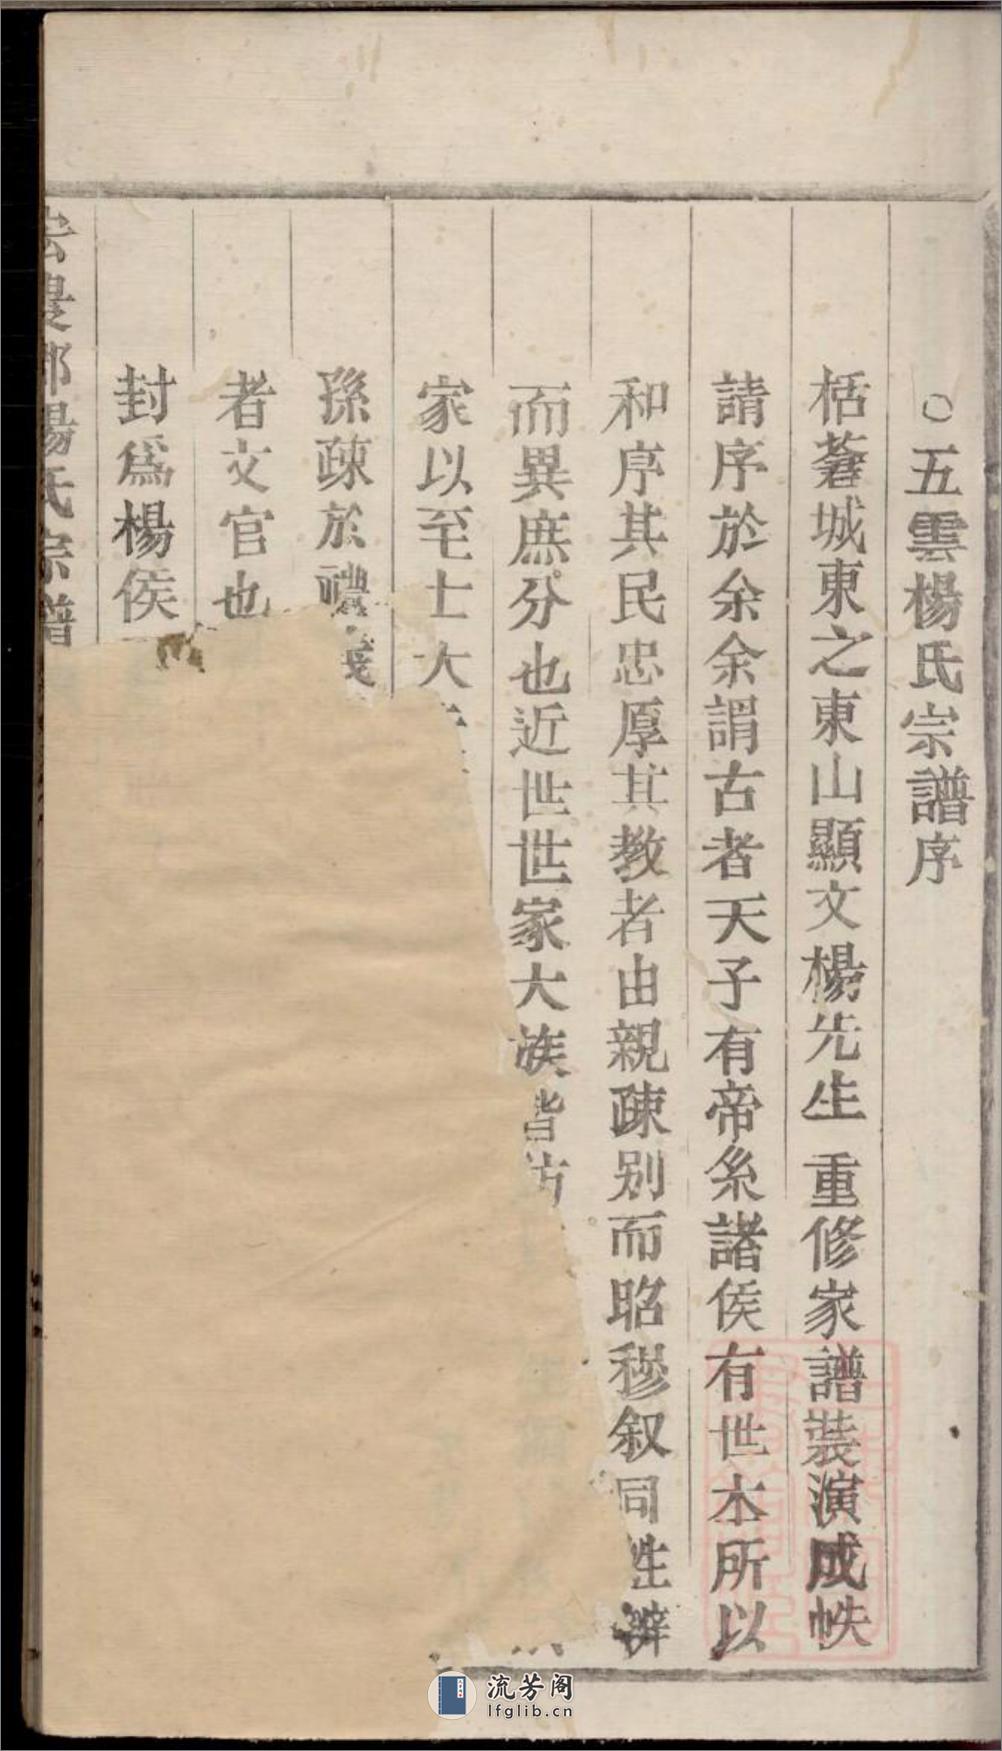 ○五雲楊氏宗譜序
栝蒼城東之東山顯文楊先生重修家譜裝演成帙
請序於余余謂古者天子有帝系諸侯有世本所以
和序其民忠厚其教者由親疎别而昭穆叙同姓辨
而異庶分也近世世家大族皆
家以至士大
孫疎於禮義
者文官也
封爲楊侯
郡楊氏宗譜
流芳阁
lfglib.cn